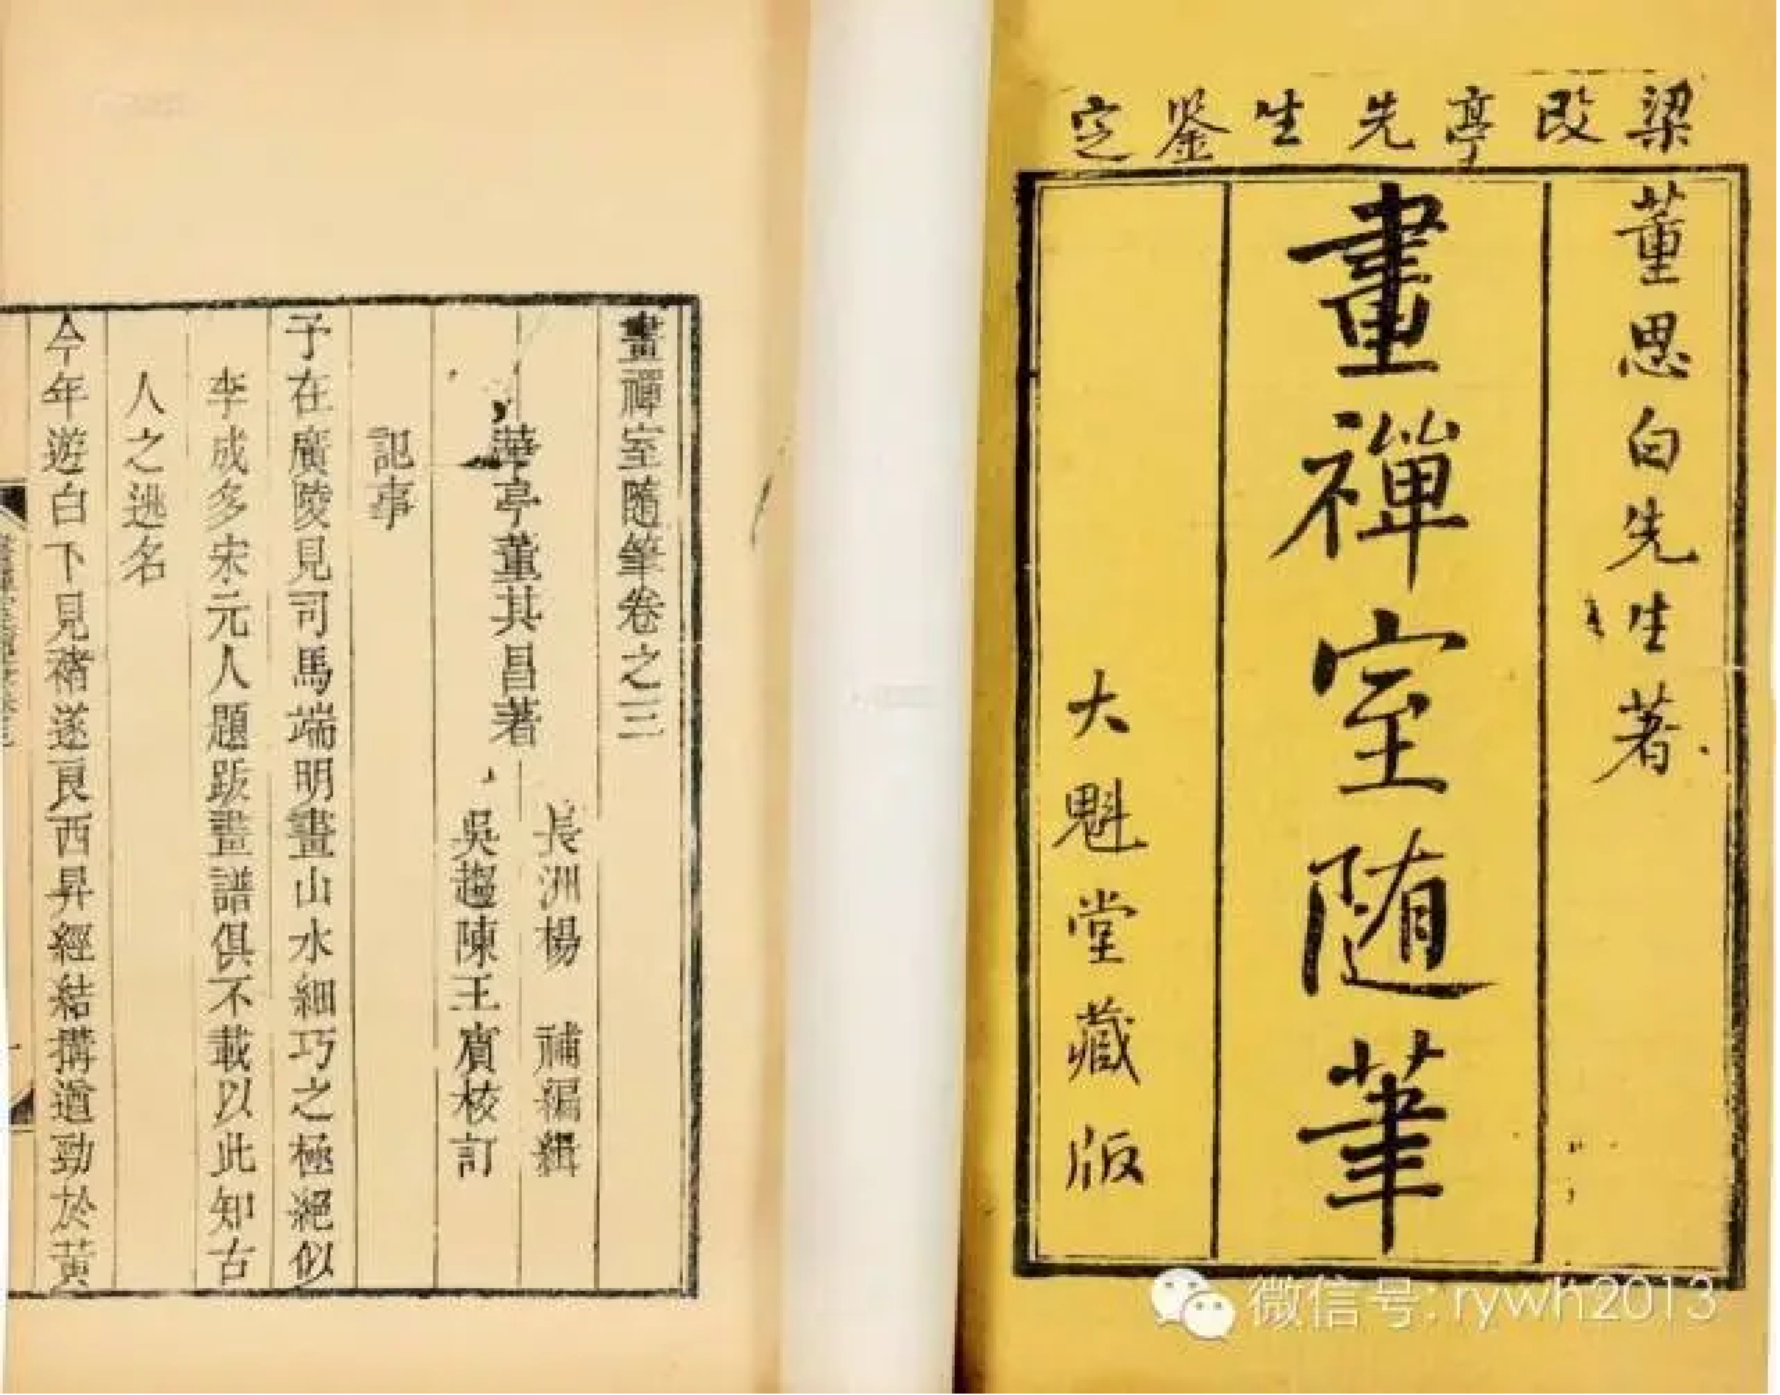 梁改亭先生鉴定
董思白先生著
畫禪室随筆
大魁堂藏版
畫禪室随筆卷之三
華亭董其昌著
長洲楊 補編緝
吳趨陳王賓校訂
記事
予在廣陵見司馬端明畫山水細巧之極絕似
李成多宋元人題跋畫譜俱不載以此知古
人之逃名
今年遊白下見褚遂良西昇經結搆遒勁於黃
微信号: rywh2013